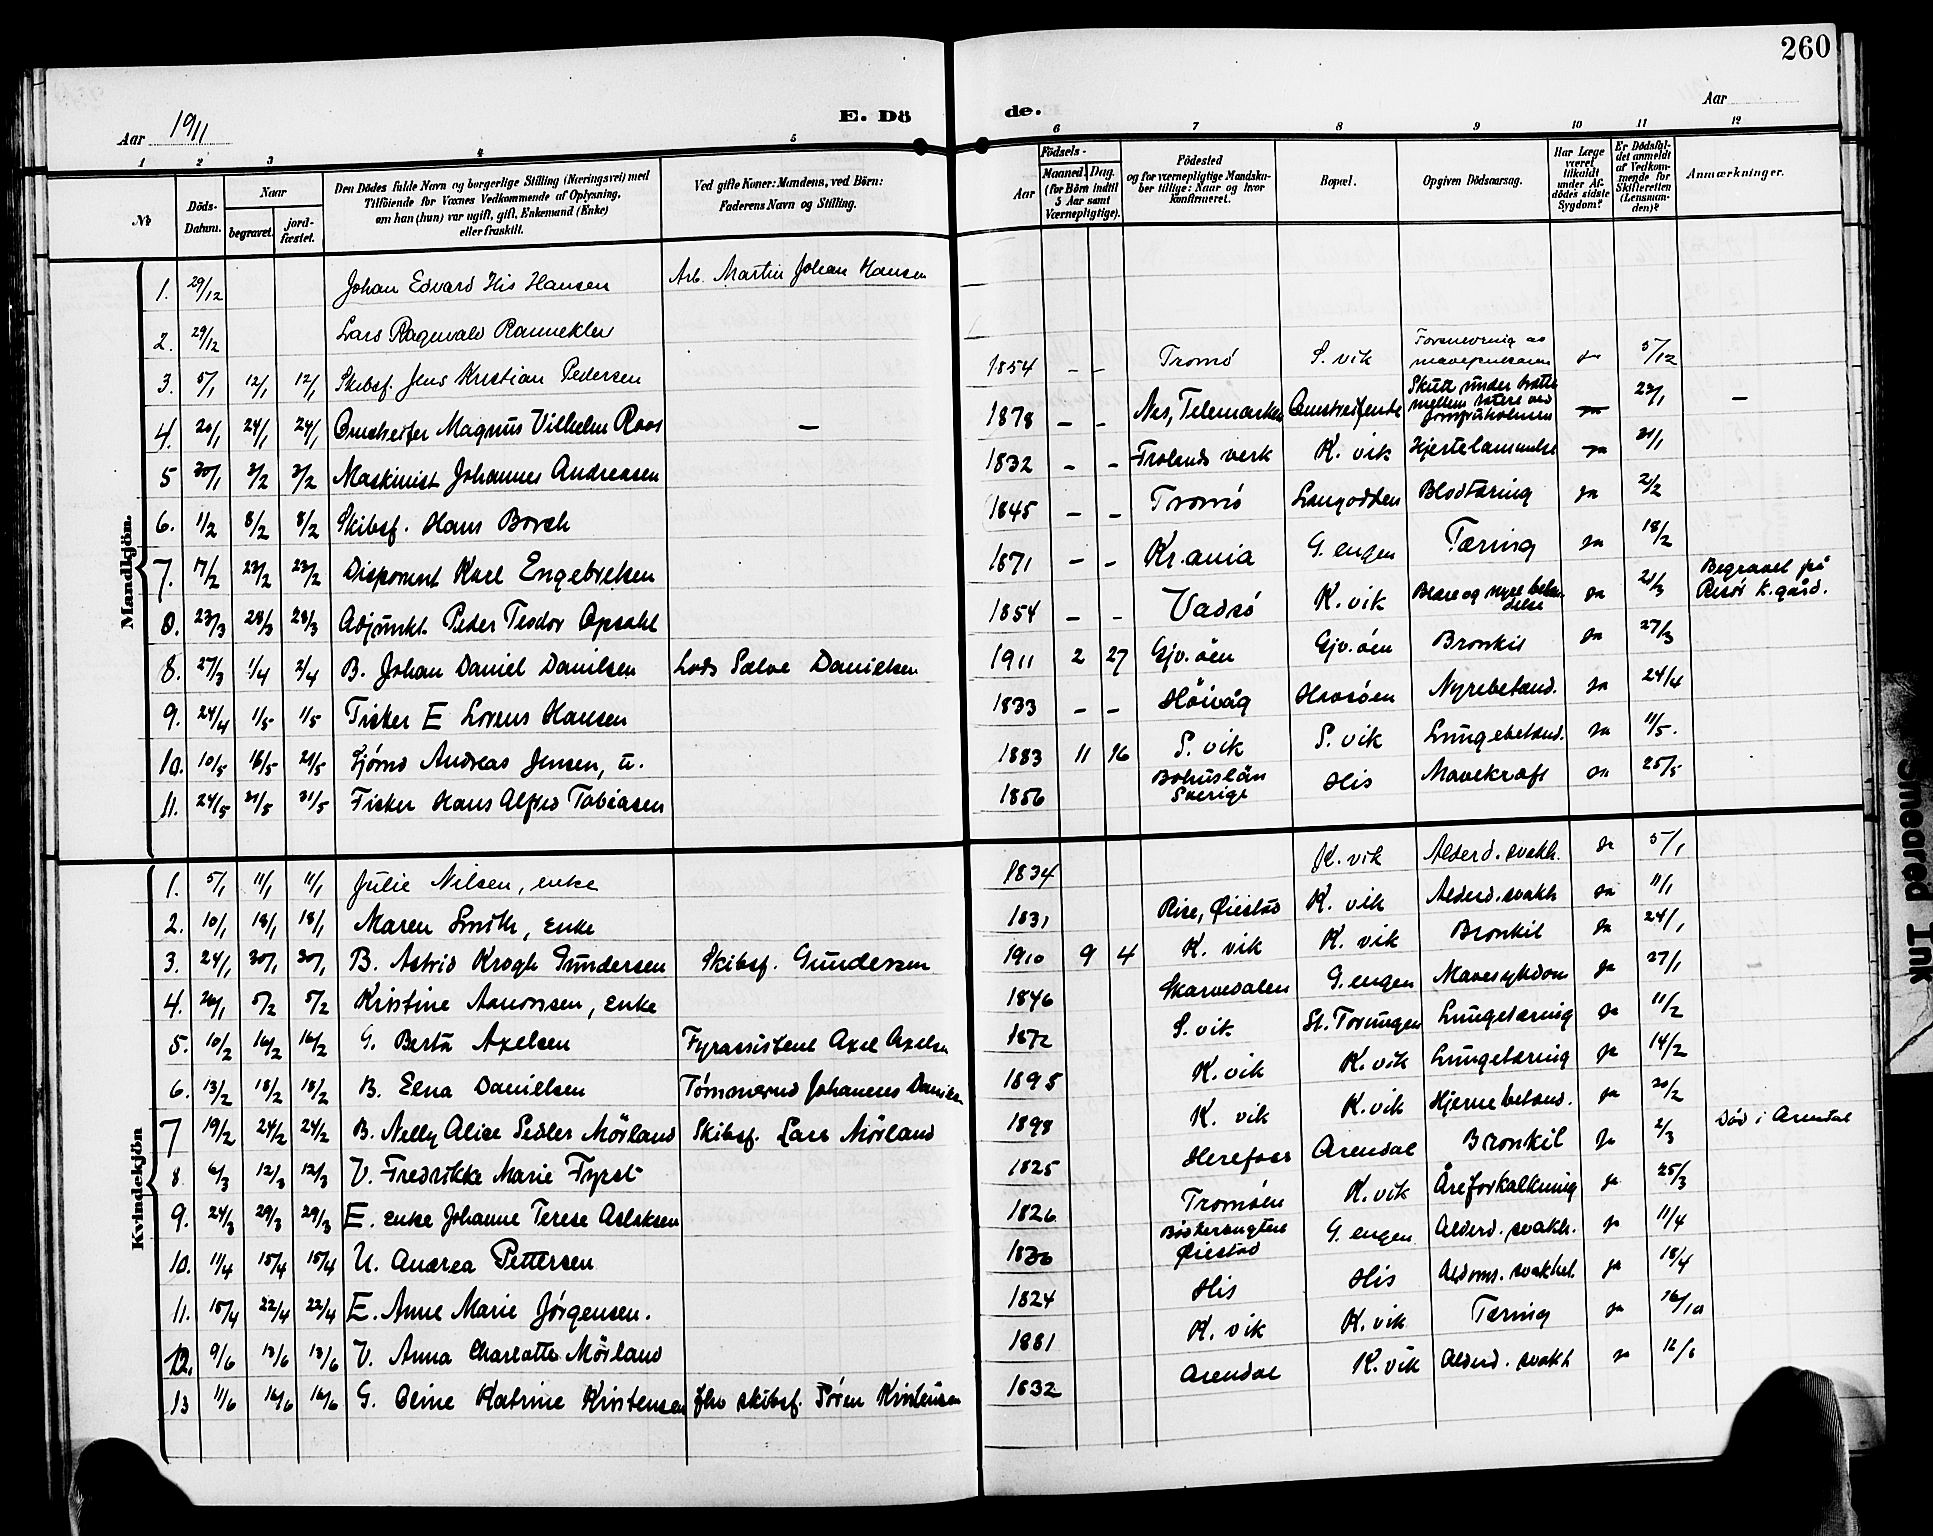 260
Aar 1911
E. Dö de.
Aar
1 2 3 4 5 6 7 8 9 10 11 12
No
Döds-Datum.
Naar
begravet.
jord-fæstet.
Den Dödes fulde Navn og borgerlige Stilling (Næringsvei) med
Tilföiende for Voxnes Vedkommende af Oplysning,
om han (hun) var ugift, gift, Enkemand (Enke)
eller fraskilt.
Ved gifte Koner: Mandens, ved Börn:
Faderens Navn og Stilling.
Födsels-
Aar
Maaned. Dag.
(for Börn indtil
5 Aar samt
Værnepligtige).
Födested
og for værnepligtige Mandska-
ber tillige: Naar og hvor
konfirmeret.
Bopæl.
Opgiven Dödsaarsag.
Har Læge
været
tilkaldt
under Af-
dödes sidste
Sygdom?
Er Dödsfal-
det anmeldt
af Vedkom-
mende for
Skifteretten
(Lensman-
den)?
Anmærkninger.
Mandkjön.
1. 29/12 Johan Edvard His Hansen Arb. Martin Johan Hansen
2. 29/12 Lars Ragnvald Rannekleiv
3. 5/1 12/1 12/1 Skibsf. Jens Kristian Pedersen 1854 – – Tromö S. vik 5/12
4. 20/1 24/1 24/1 Magnus Vilhelm Roos – 1878 – – Nes, Telemarken Skutt under 23/1 –
5 30/1 3/2 3/2 Maskinist Johannes Andreasen 1832 – – Frolands verk K. vik Hjertelammelse ja 31/1
6. 1/2 8/2 8/2 Skibsf. Hans Borch 1845 – – Tromö Langodden Blodtæring ja 2/2
7. 17/2 23/2 23/2 Disponent Karl Engebretsen 1871 – – Kr.ania G. engen Tæring ja 18/2
8. 23/3 28/3 28/3 Adjunkt. Peder Teodor Opsahl 1854 – – Vadsö K. vik ja Begravet på Risör k.gård.
8. 27/3 1/4 2/4 B. Johan Daniel Danilsen Lods Salve Danielsen 1911 2 27 Gjv. öen Gjv. öen Bronkit ja 27/3
9. 24/4 1/5 1/5 Fisker E Lorens Hansen 1833 – – Höivåg Havsöen Nyrebetænd. ja 24/4
10. 10/5 16/5 21/5 Sjömd Andreas Jensen, u. 1883 11 16 S. vik S. vik Lungebetænd. ja 11/5.
11. 24/5 31/5 31/5 Fisker Hans Alfred Tobiasen 1856 Bohuslän Sverige His Mavekræft ja 25/5
Kvindekjön
1. 5/1 11/1 11/1 Julie Nilsen, enke 1834 K. vik Alderd. svakh. ja 5/1
2. 10/1 18/1 18/1 Maren Smith, enke 1831 Rise, Öiestad K. vik Alderd. svakh ja 11/1
3. 24/1 30/1 30/1 B. Astrid Krogh Gundersen Skibsf. Gundersen 1910 9 4 K. vik K. vik Bronkit ja 24/1
4. 26/1 5/2 5/2 Kristine Aanonsen, enke 1846 Skarvedalen G. engen Mavesykdom ja 27/1
5. 10/2 16/2 16/2 G. Berta Axelsen Fyrassistent Axel Axelsen 1872 S. vik St. Torungen Lungetæring ja 11/2
6. 13/2 18/2 18/2 B. Elna Danielsen Tømmermd Johannes Danielsen 1895 K. vik K. vik Lungetæring ja 14/2
7 19/2 24/2 24/2 B. Nelly Alice Sedler Mörland Skibsf. Lars Mörland 1898 K. vik K. vik Hjernebetænd. ja 20/2
8 6/3 12/3 12/3 V. Fredrikke Marie Fyrst 1825 Herefoss Arendal Bronkit ja 2/3 Död i Arendal
9. 24/3 29/3 29/3 E. enke Johanne Terese Aslaksen 1826 Tromöen K. vik Åreforkalkning ja 25/3
10. 11/4 15/4 15/4 U. Andrea Pettersen 1836 Öiestad G. engen Alderd. svakh. ja 11/4
11. 15/4 22/4 22/4 E. Anne Marie Jörgensen. 1824 His His Aldoms. svakhet ja 18/4
12. 9/6 13/6 13/6 V. Anna Charlotte Mörland 1881 K. vik K. vik Tæring ja 16/10
13 11/6 16/6 16/6 G. Oline Katrine Kristensen fhv skibsf. Sören Kristensen 1832 Arendal K. vik Alderd. svakh ja 12/6
Smeared Ink